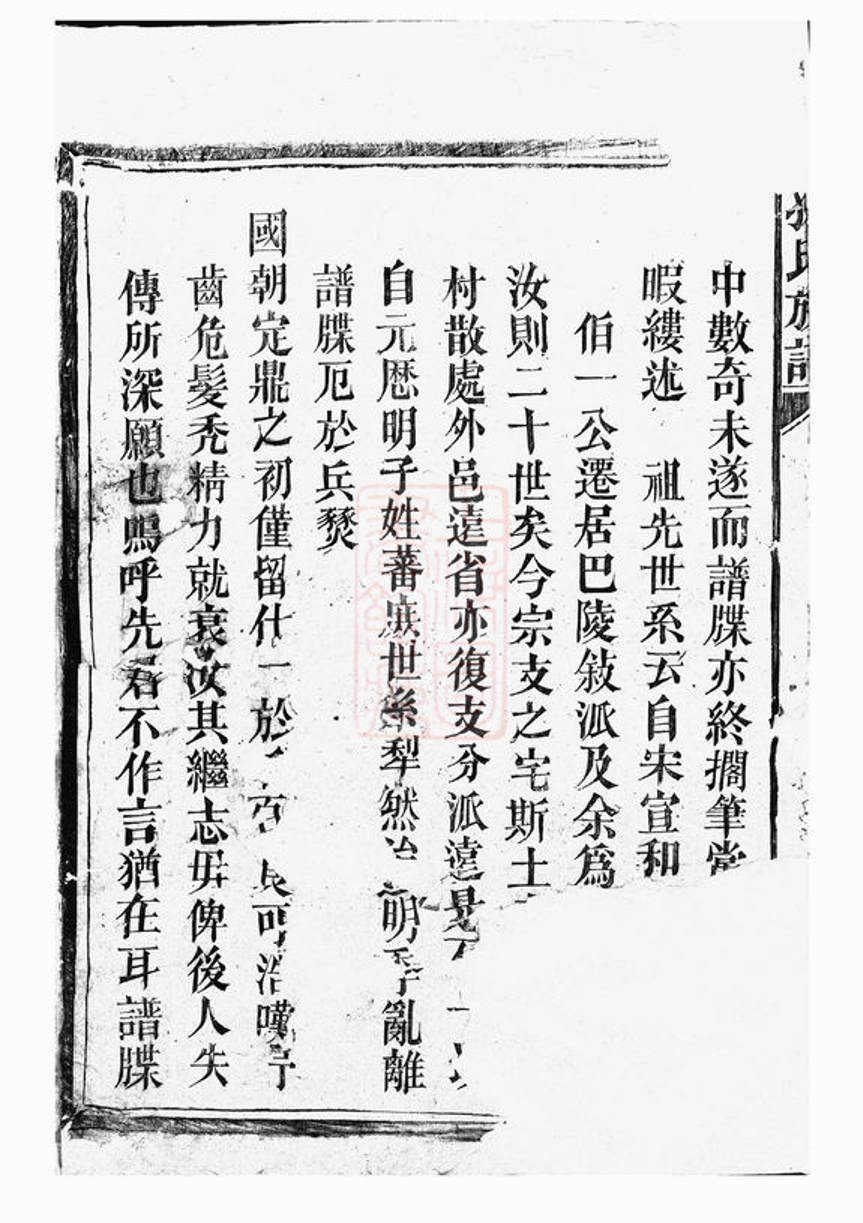 氏族譜
中數奇未遂而譜牒亦終擱筆當
暇縷述 祖先世系云自宋宣和
伯一公遷居巴陵敍派及余爲
汝則二十世矣今宗支之宅斯土
村散處外邑遠省亦復支分派遠
自元厯明子姓蕃庶世系犁然 明季亂離
譜牒厄於兵燹
國朝定鼎之初僅留什一於 可浩嘆予
齒危髮禿精力就衰汝其繼志毋俾後人失
傳所深願也嗚呼先君不作言猶在耳譜牒